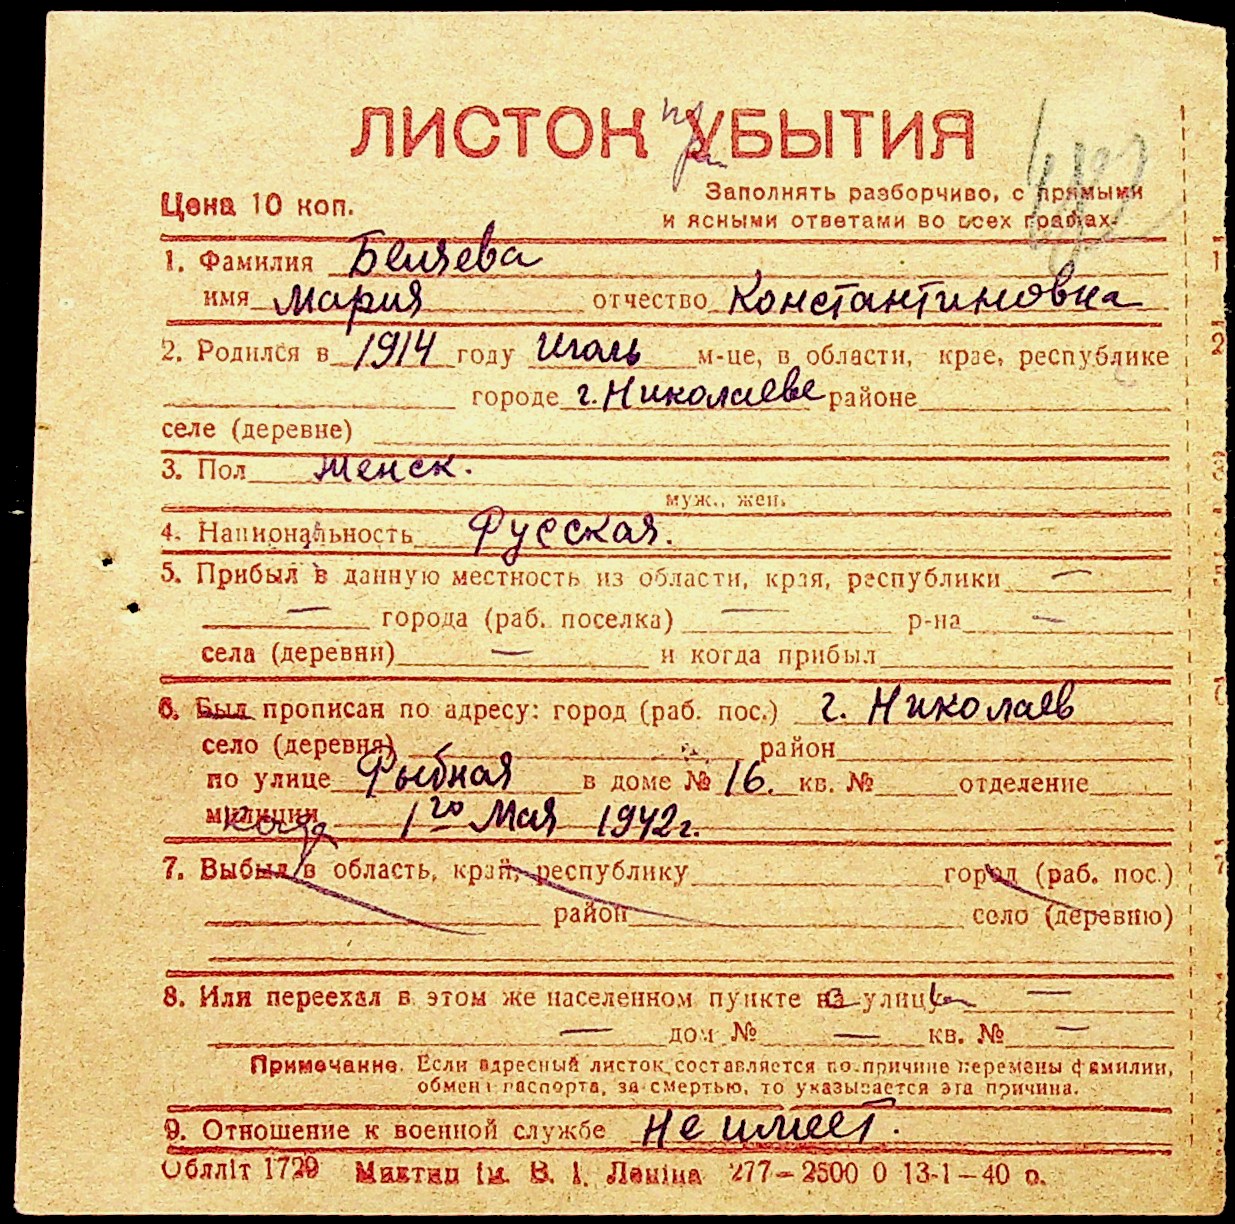 ЛИСТОК УБЫТИЯ
при
Цена 10 коп.
Заполнять разборчиво, с прямыми
и ясными ответами во всех графах.
1. Фамилия Беляева
имя Мария отчество Константиновна
2. Родился в 1914 году Июль м-це, в области, крае, республике
городе г. Николаеве районе
селе (деревне)
3. Пол Женск.
муж., жен.
4. Национальность Русская.
5. Прибыл в данную местность из области, края, республики —
— города (раб. поселка) — р-на —
села (деревни) — и когда прибыл
6. Был прописан по адресу: город (раб. пос.) г. Николаев
село (деревня) район
по улице Рыбная в доме № 16. кв. № отделение
милиции
когда 1го Мая 1942 г.
7. Выбыл в область, край, республику город (раб. пос.)
район село (деревню)
8. Или переехал в этом же населенном пункте из улицы —
— дом № — кв. № —
Примечание. Если адресный листок составляется по причине перемены фамилии,
обмена паспорта, за смертью, то указывается эта причина.
9. Отношение к военной службе Не имеет.
Обліт 1729 Миктип ім. В. І. Леніна 277—2500 0 13-1—40 р.